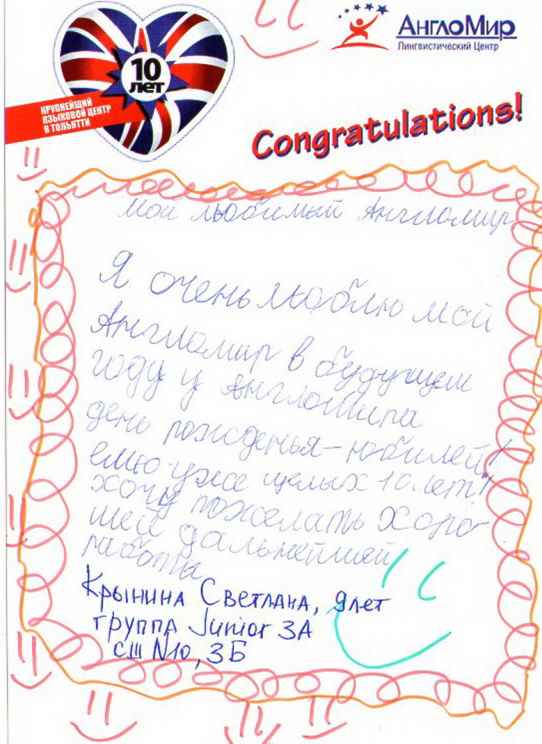 10
ЛЕТ
КРУПНЕЙШИЙ
ЯЗЫКОВОЙ ЦЕНТР
В ТОЛЬЯТТИ
АнглоМир
Лингвистический Центр
Congratulations!
Мой любимый Англомир
Я очень люблю мой
Англомир в будущем
году у Англомира
день рожденья-юбилей!
ему уже целых 10 лет!
хочу пожелать хоро-
шей дальнейшей
работы
Крынина Светлана, 9 лет
группа Junior 3A
сш N10, 3Б